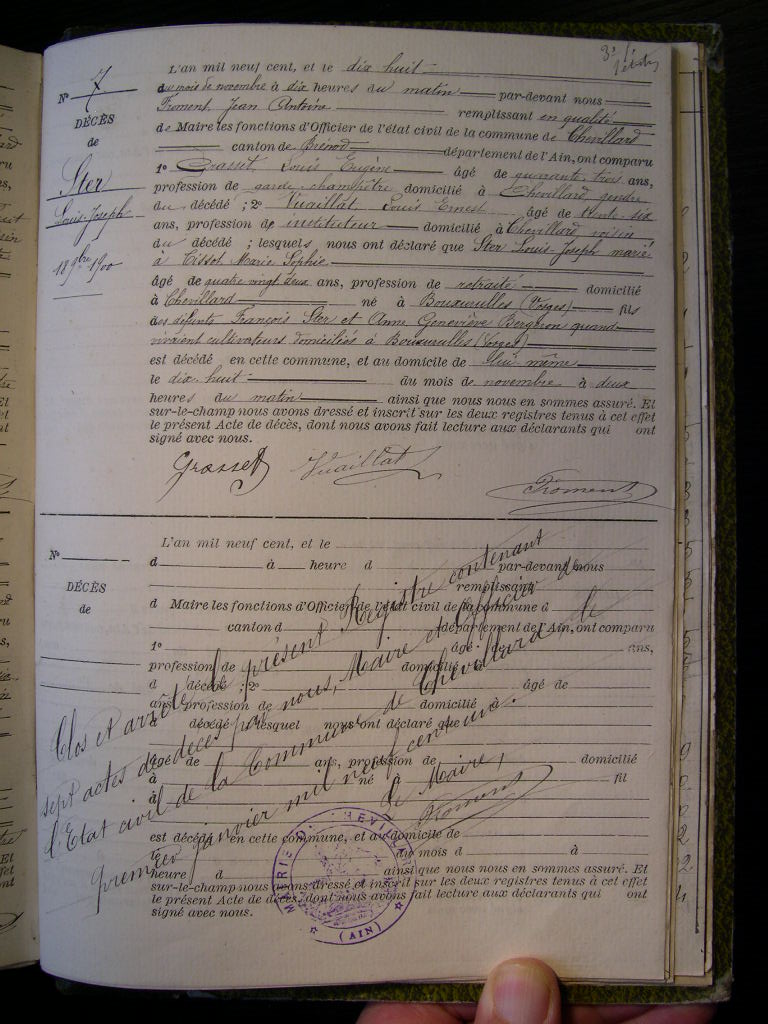 3e f.
N° 7
DÉCÈS
de
Ster
Louis-Joseph
18 9bre 1900
L'an mil neuf cent, et le dix huit
du mois de novembre à dix heures du matin par-devant nous
Froment Jean Antoine remplissant en qualité
de Maire les fonctions d'Officier de l'état civil de la commune de Chevillard
canton de Brénod département de l'Ain, ont comparu
1° Grasset Louis Eugène âgé de quarante trois ans,
profession de garde champêtre domicilié à Chevillard gendre
du décédé ; 2° Vuaillat Louis Ernest âgé de trente-six
ans, profession de instituteur domicilié à Chevillard voisin
du décédé ; lesquels nous ont déclaré que Ster Louis-Joseph marié
à Tissot Marie Sophie
âgé de quatre vingt deux ans, profession de retraité domicilié
à Chevillard né à Bouxurulles (Vosges) fils
des défunts François Ster et Anne Geneviève Bergeron quand
vivaient cultivateurs domiciliés à Bouxurulles (Vosges)
est décédé en cette commune, et au domicile de lui même
le dix huit du mois de novembre à deux
heures du matin ainsi que nous nous en sommes assuré. Et
sur-le-champ nous avons dressé et inscrit sur les deux registres tenus à cet effet
le présent Acte de décès, dont nous avons fait lecture aux déclarants qui ont
signé avec nous.
Grasset Vuaillat Froment
N°
DÉCÈS
de
L'an mil neuf cent, et le
d à heure d par-devant nous
remplissant
d Maire les fonctions d'Officier de l'état civil de la commune d
canton d département de l'Ain, ont comparu
1° âgé de ans,
profession de domicilié à
d décédé ; 2° âgé de
ans, profession de domicilié à
d décédé ; lesquel nous ont déclaré que
âgé de ans, profession de domicilié
à né à fil
d
est décédé en cette commune, et au domicile de
le du mois d à
heure d ainsi que nous nous en sommes assuré. Et
sur-le-champ nous avons dressé et inscrit sur les deux registres tenus à cet effet
le présent Acte de décès, dont nous avons fait lecture aux déclarants qui ont
signé avec nous.
Clos et arrêté le présent Registre contenant
sept actes de décès par nous, Maire et Officier de
l'Etat civil de la Commune de Chevillard, le
premier janvier mil neuf cent un.
Le Maire,
Froment
MAIRIE DE CHEVILLARD
(AIN)